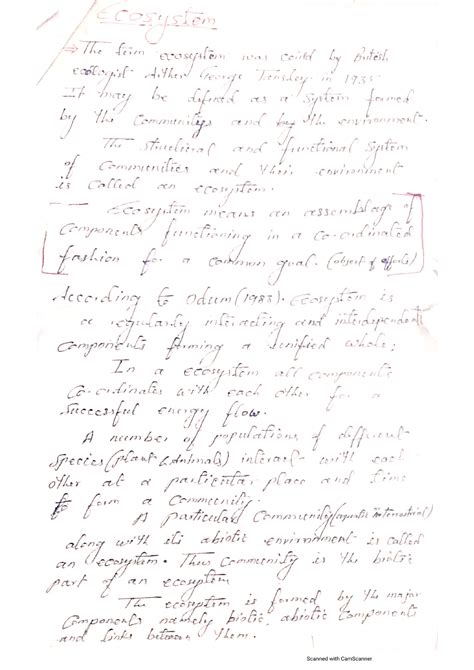 Ecosystem
⇒ The term ecosystem was coind by British
ecologist Arther George Tensley in 1935
It may be defined as a System formed
by the Communitys and by the environment.
The structural and functional System
of Communities and their environment
is called an ecosystem.
Ecosystem means an assemblage of
Components functioning in a co-ordinated
fashion for a common goal. (object of efforts)
According to Odum (1983). Ecosystem is
a regularly interacting and interdependent
Components forming a unified whole;
In a ecosystem all components
Co-ordinates with each other for a
Successful energy flow.
A number of populations of different
Species (plant & Animals) interact with each
other at a particular place and time
to form a Community.
A particular Community (aquatic terrestrial)
along with its abiotic environment is called
an ecosystem. Thus Community is the biotic
part of an ecosystem
The ecosystem is formed by the major
Components namely biotic, abiotic components
and links between them.
Scanned with CamScanner